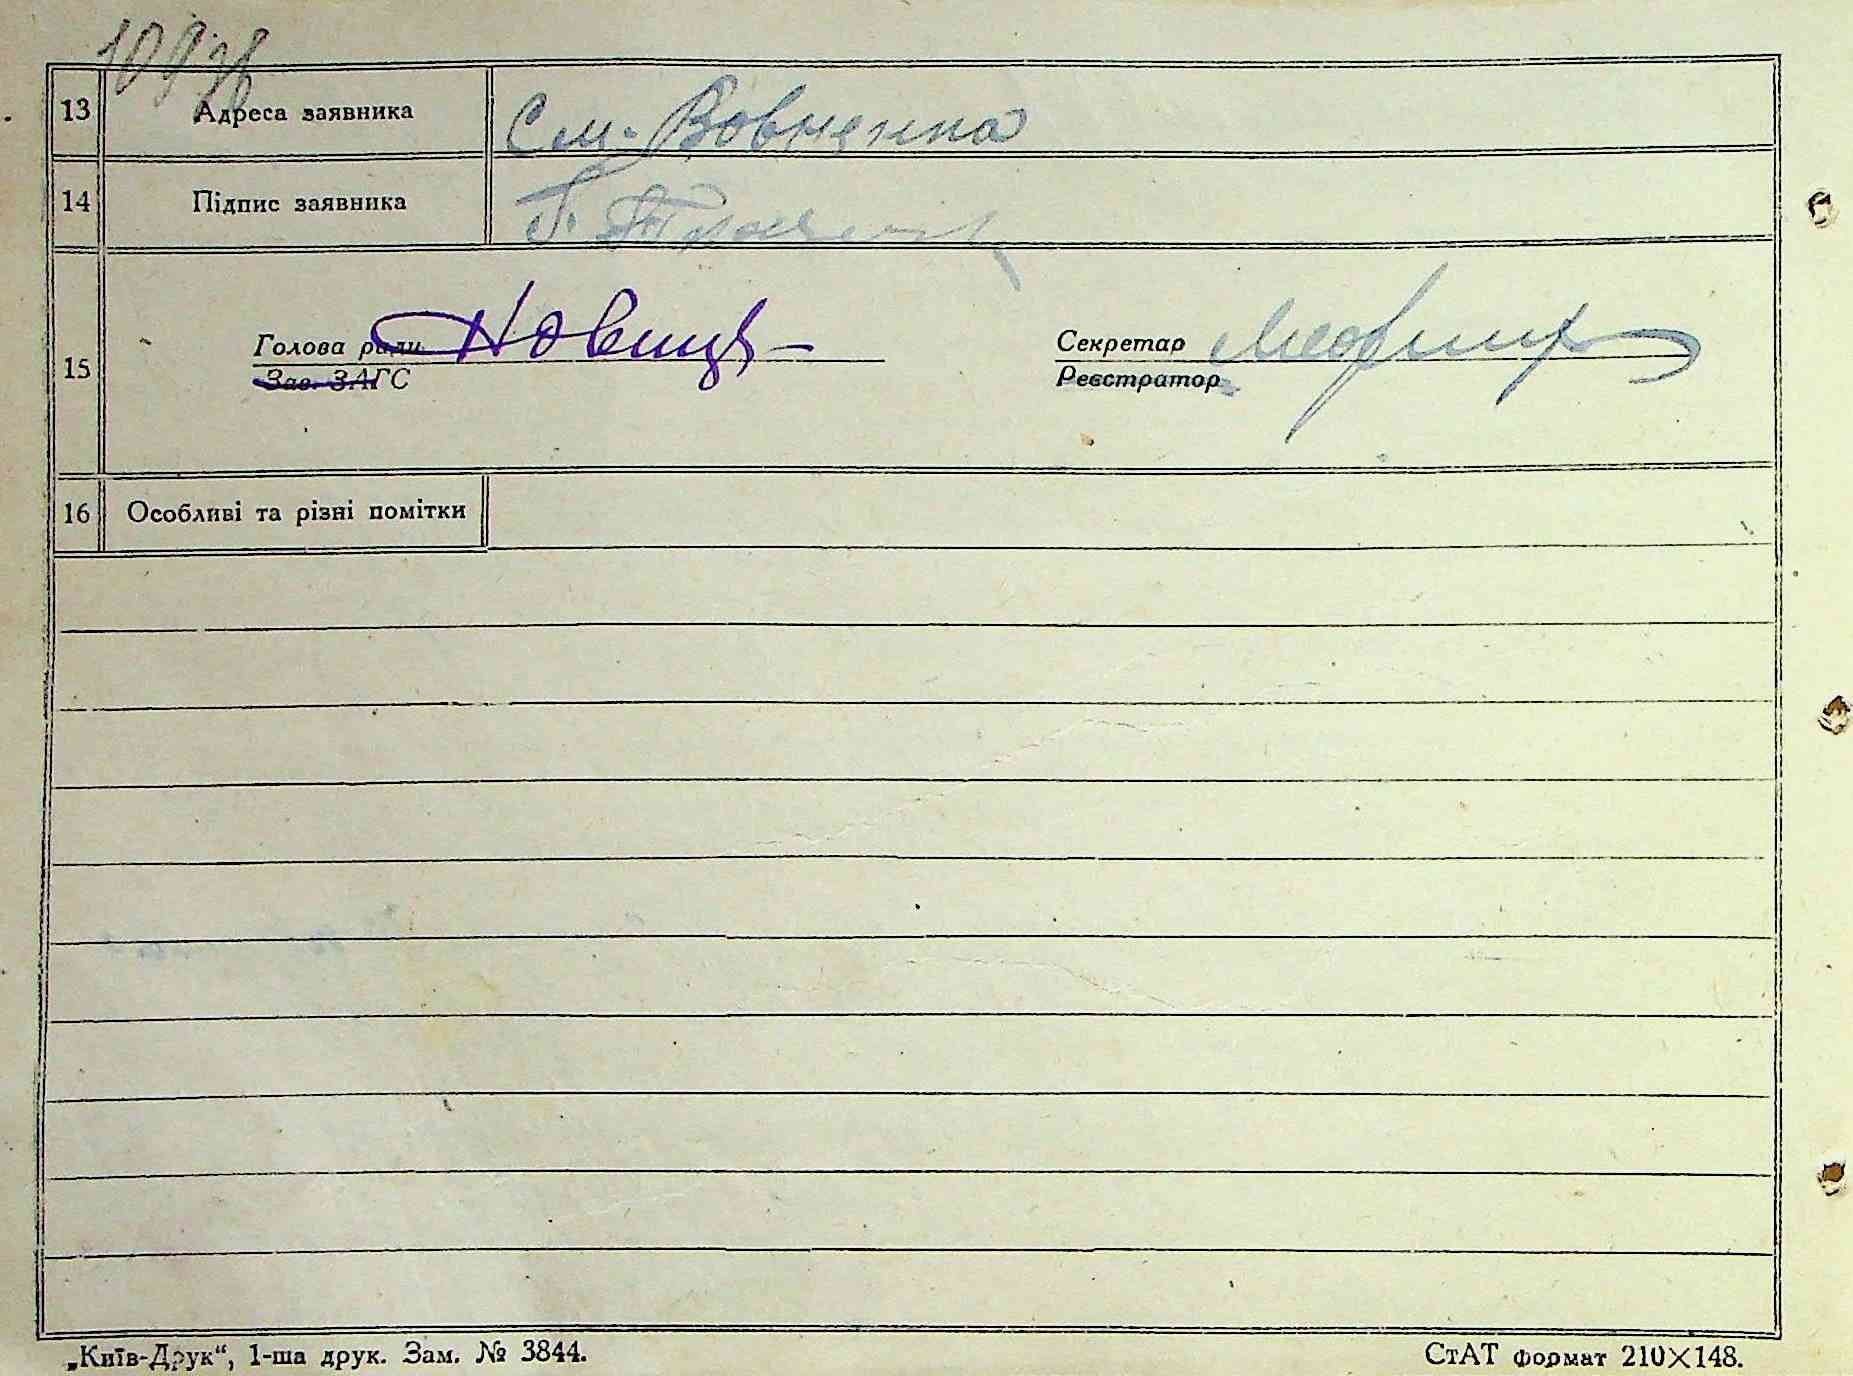 13 Адреса заявника См. Вовченка
14 Підпис заявника
15
Голова ради Секретар
Зав. ЗАГС Реєстратор
16 Особливі та різні помітки
„Київ-Друк“, 1-ша друк. Зам. № 3844. СтАТ формат 210×148.